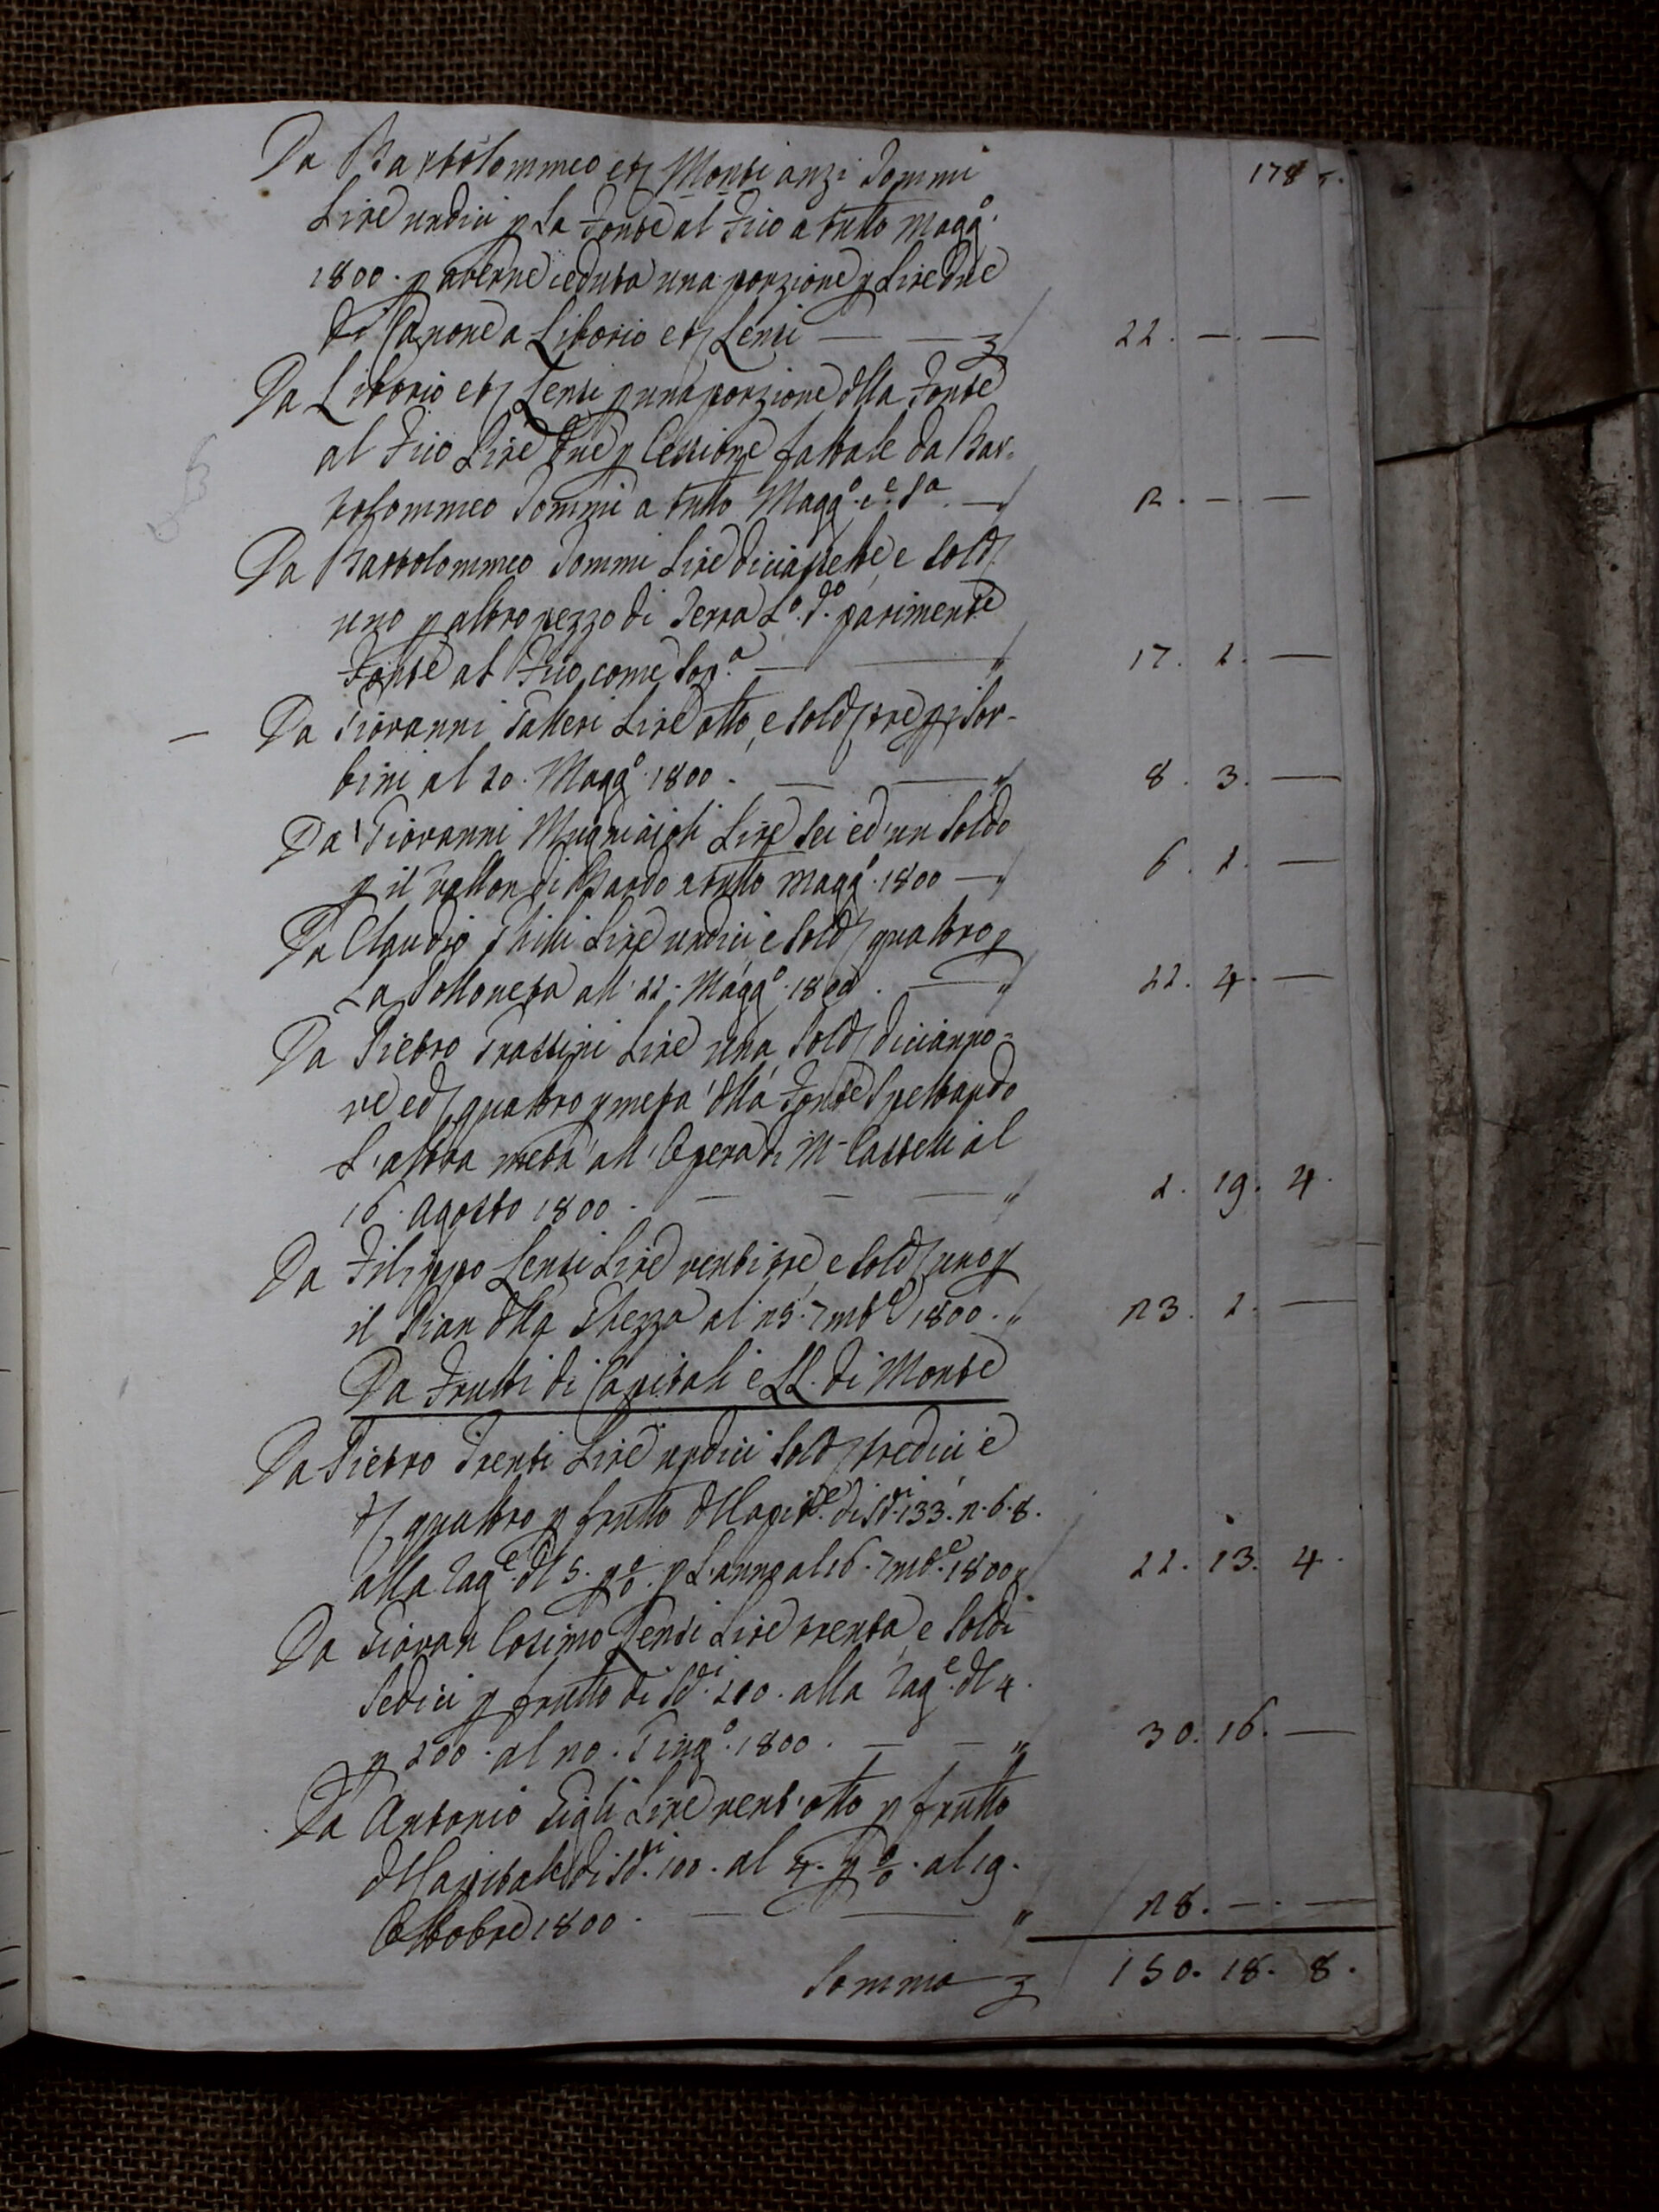 178
Da Bartolommeo et Monti anzi Tommi
Lire undici p La Fonte al Fico a tutto Magg.o
1800. p averne ceduta una porzione p Lire due
di Canone a Liborio et Lensi — — 11. —. —
Da Liborio et Lensi p una porzione dlla Fonte
al Fico Lire due p Cessione fattale da Bar=
tolommeo Tommi a tutto Magg.o c.e s.a — 2. —. —
Da Bartolommeo Tommi Lire diciassette, e sold
uno p altro pezzo di Terra L.o d.o parimente
Fonte al Fico, come Sop.a — " 17. 1. —
Da Giovanni Lire otto, e sold tre p i Sor-
bini al 10. Magg.o 1800. — — " 8. 3. —
Da Giovanni Mugniaioli Lire sei ed un soldo
p il Vallon di Bardo a tutto Magg.o 1800 — 6. 1. —
Da Claudio Lire undici e sold quattro p
La all' 11. Magg.o 1800. — " 11. 4. —
Da Pietro Frassini Lire una, sold dicianno=
ve ed quattro p metà dlla Fonte Spettando
L'altra metà all'Opera di M- Castelli al
16. Agosto 1800. — — — " 1. 19. 4.
Da Filippo Lensi Lire ventitre, e sold uno p
il Pian dlla Ghezza al 23. 7mb.e 1800. " 23. 1. —
Da Frutti di Capitali e LL. di Monte
Da Pietro Trenti Lire undici sold tredici e
quattro p frutto dl Capit.e di Sd.i 133. 2. 6. 8.
alla Rag.e dl 5. p % p L'anno al 16. 7mb.e 1800 11. 13. 4.
Da Giovan Cosimo Lensi Lire trenta, e soldi
sedici p frutto di Sd.i 110. alla Rag.e dl 4.
p 100. al 20. Giug.o 1800. — — " 30. 16. —
Da Antonio Gigli Lire vent'otto p frutto
dl Capitale di Sd.i 100. al 4. p % al 19.
Ottobre 1800. — — " 28. —. —
Somma 150. 18. 8.